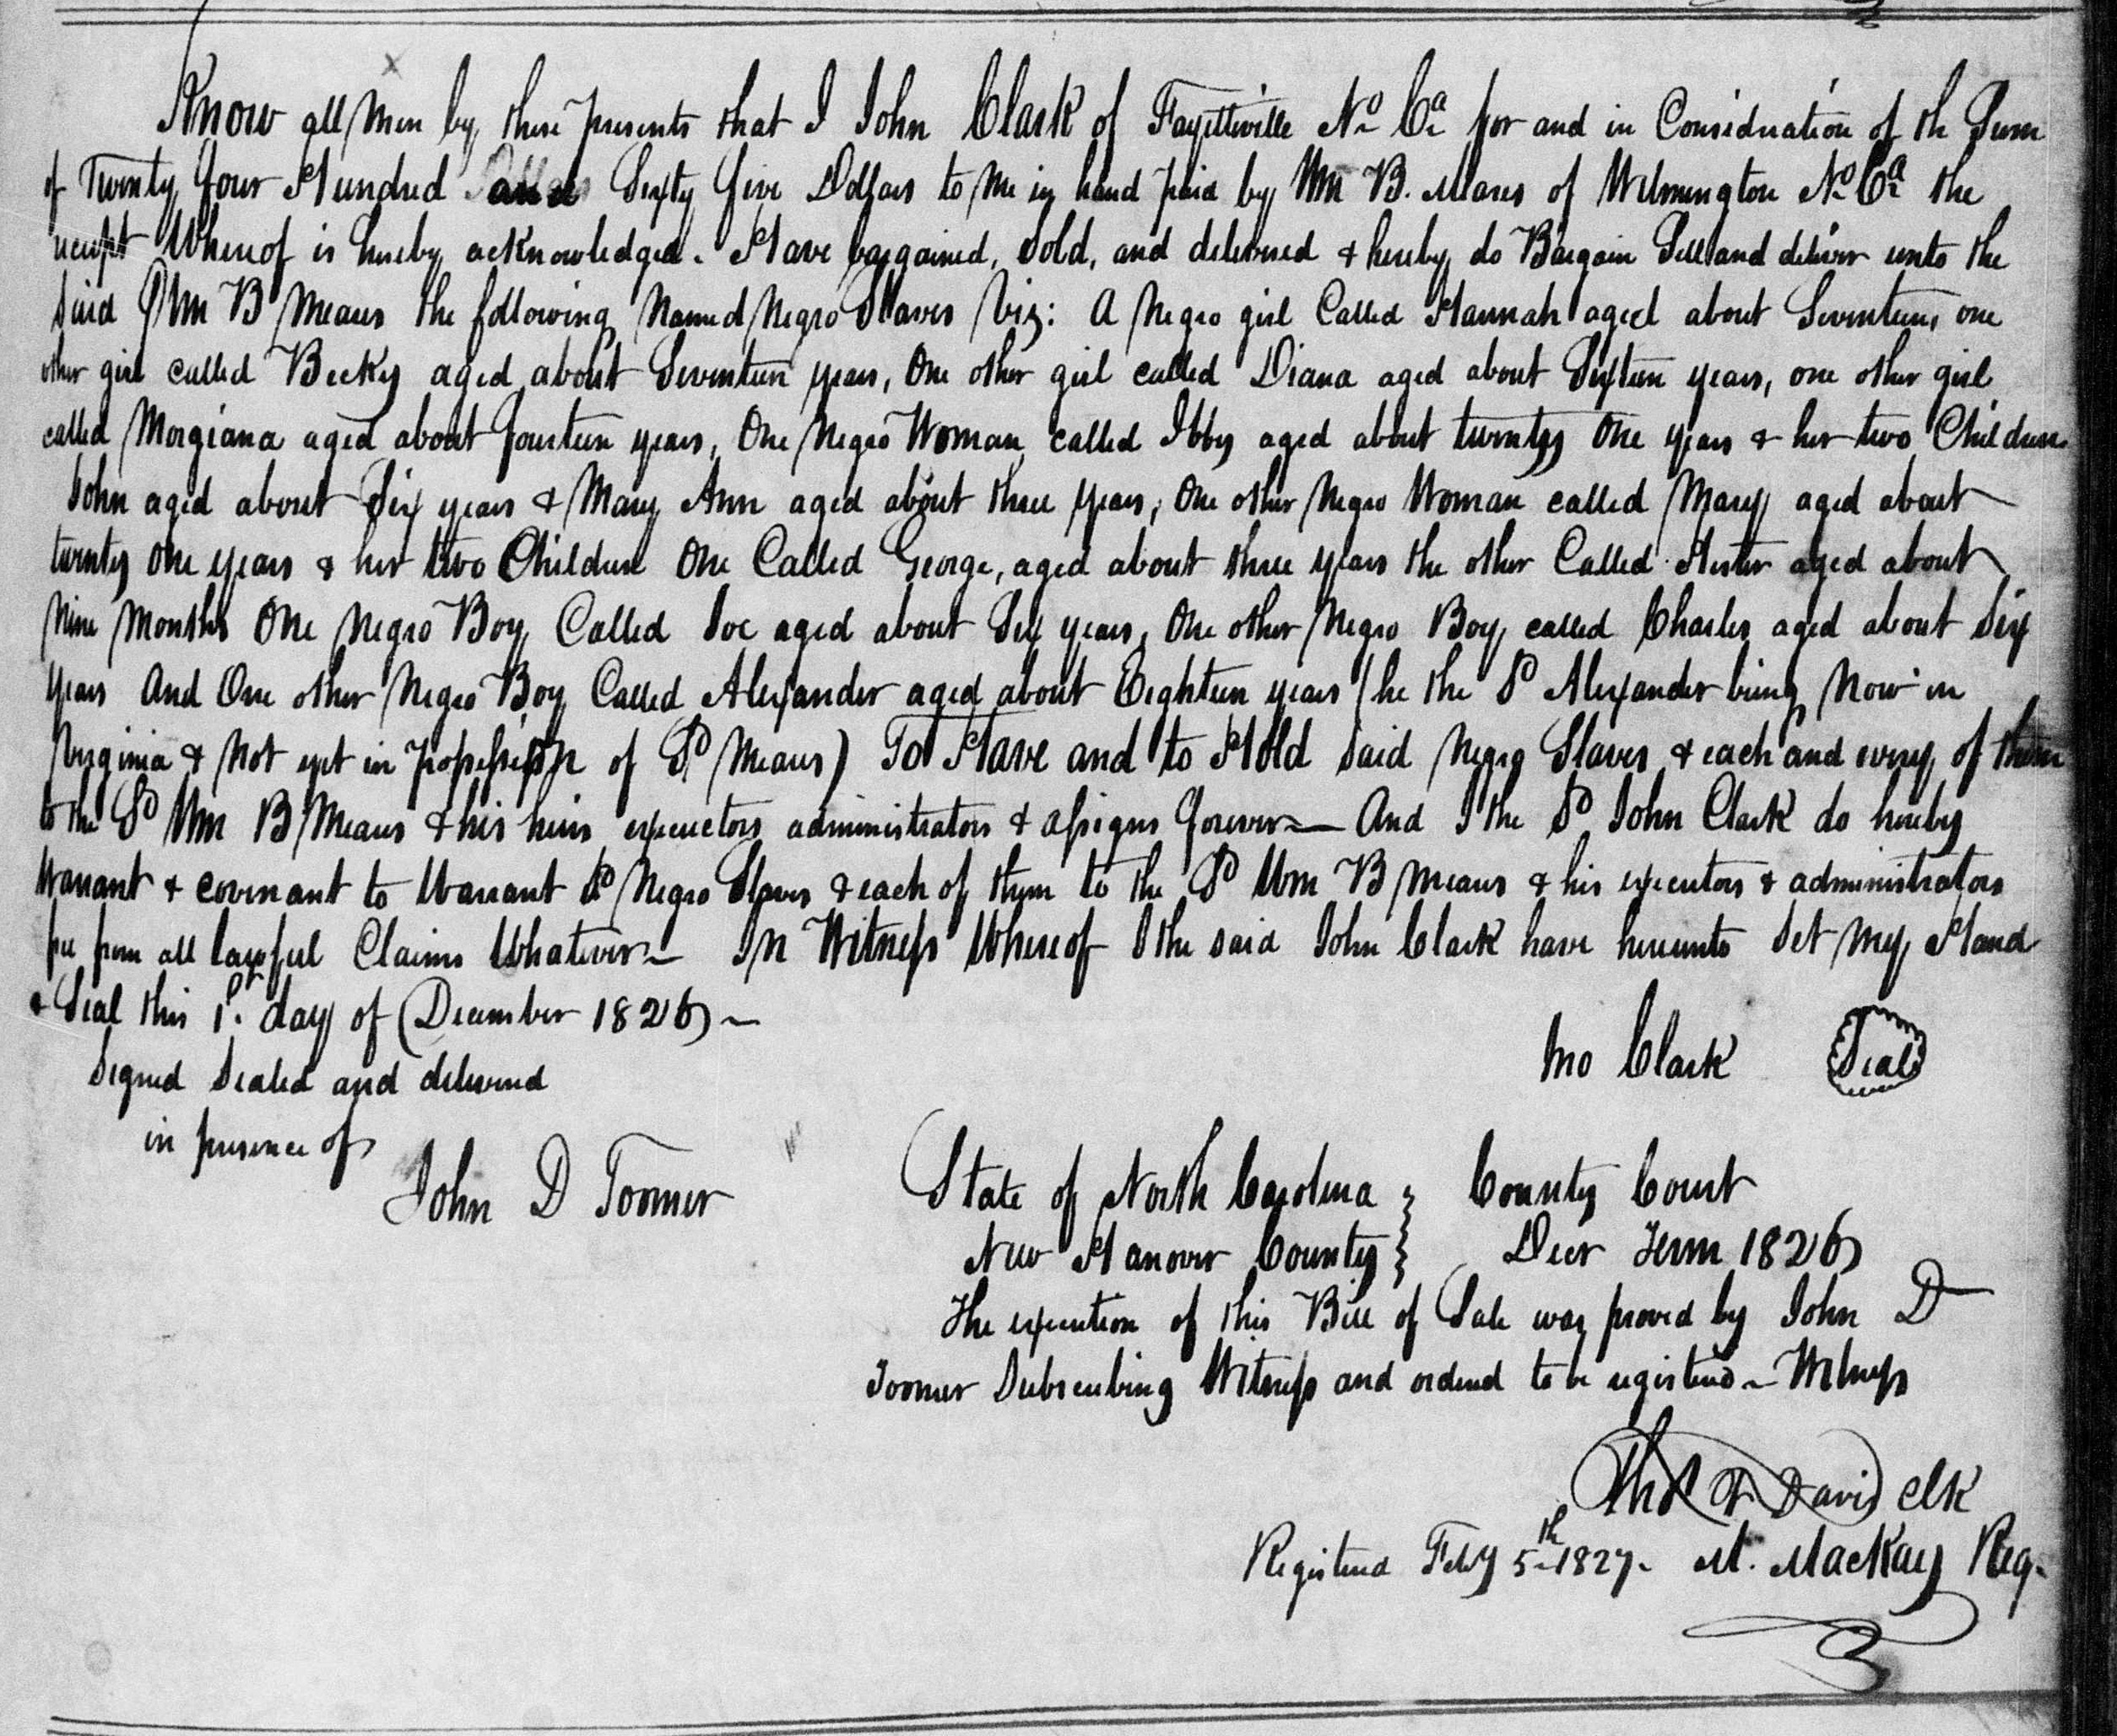 Know all Men by these presents that I John Clark of Fayetteville No Ca for and in Consideration of the Sum
of Twenty four Hundred and Sixty five Dollars to me in hand paid by Wm B. Meares of Wilmington No Ca the
receipt Whereof is hereby acknowledged. Have bargained, Sold, and delivered & hereby do Bargain Sell and deliver unto the
said Wm B Meares the following Named Negro Slaves Viz: A Negro girl Called Hannah aged about Seventeen, one
other girl called Becky aged about Seventeen years, One other girl called Diana aged about Sixteen years, one other girl
called Morgiana aged about fourteen years, One Negro Woman called Ibby aged about twenty One years & her two Children
John aged about Six years & Mary Ann aged about three years, One other Negro Woman called Mary aged about
twenty One years & her two Children One Called George, aged about three years the other Called Hester aged about
Nine Months One Negro Boy Called Joe aged about Six years, One other Negro Boy called Charles aged about Six
years And One other Negro Boy Called Alexander aged about Eighteen years (he the Sd Alexander being Now in
Virginia & Not yet in possession of Sd Meares) To Have and to Hold said Negro Slaves & each and every of them
to the Sd Wm B Meares & his heirs executors administrators & assigns forever — And I the Sd John Clark do hereby
Warrant & covenant to Warrant Sd Negro Slaves & each of them to the Sd Wm B Meares & his executors & administrators
free from all lawful Claims Whatever — In Witness Whereof I the said John Clark have hereunto Set My Hand
& Seal this 1st day of December 1826 —
Jno Clark Seal
Signed Sealed and delivered
in presence of
John D Toomer
State of North Carolina } County Court
New Hanover County } Decr Term 1826
The execution of this Bill of Sale was proved by John D
Toomer Subscribing Witness and ordered to be registered — Witness
Thos F Davis Clk
Registered Feby 5th 1827. M. MacKay Reg.